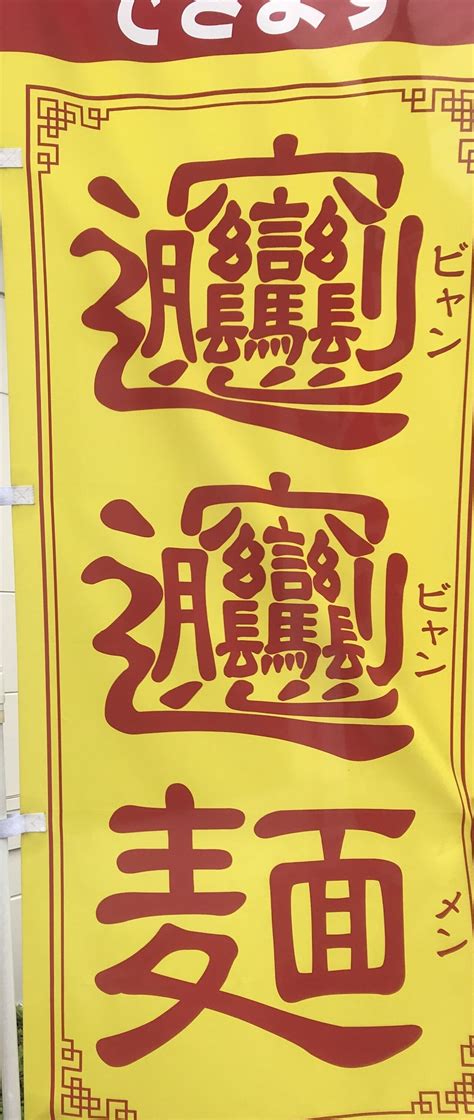 できます
𰻞𰻞麺
ビャン ビャン メン